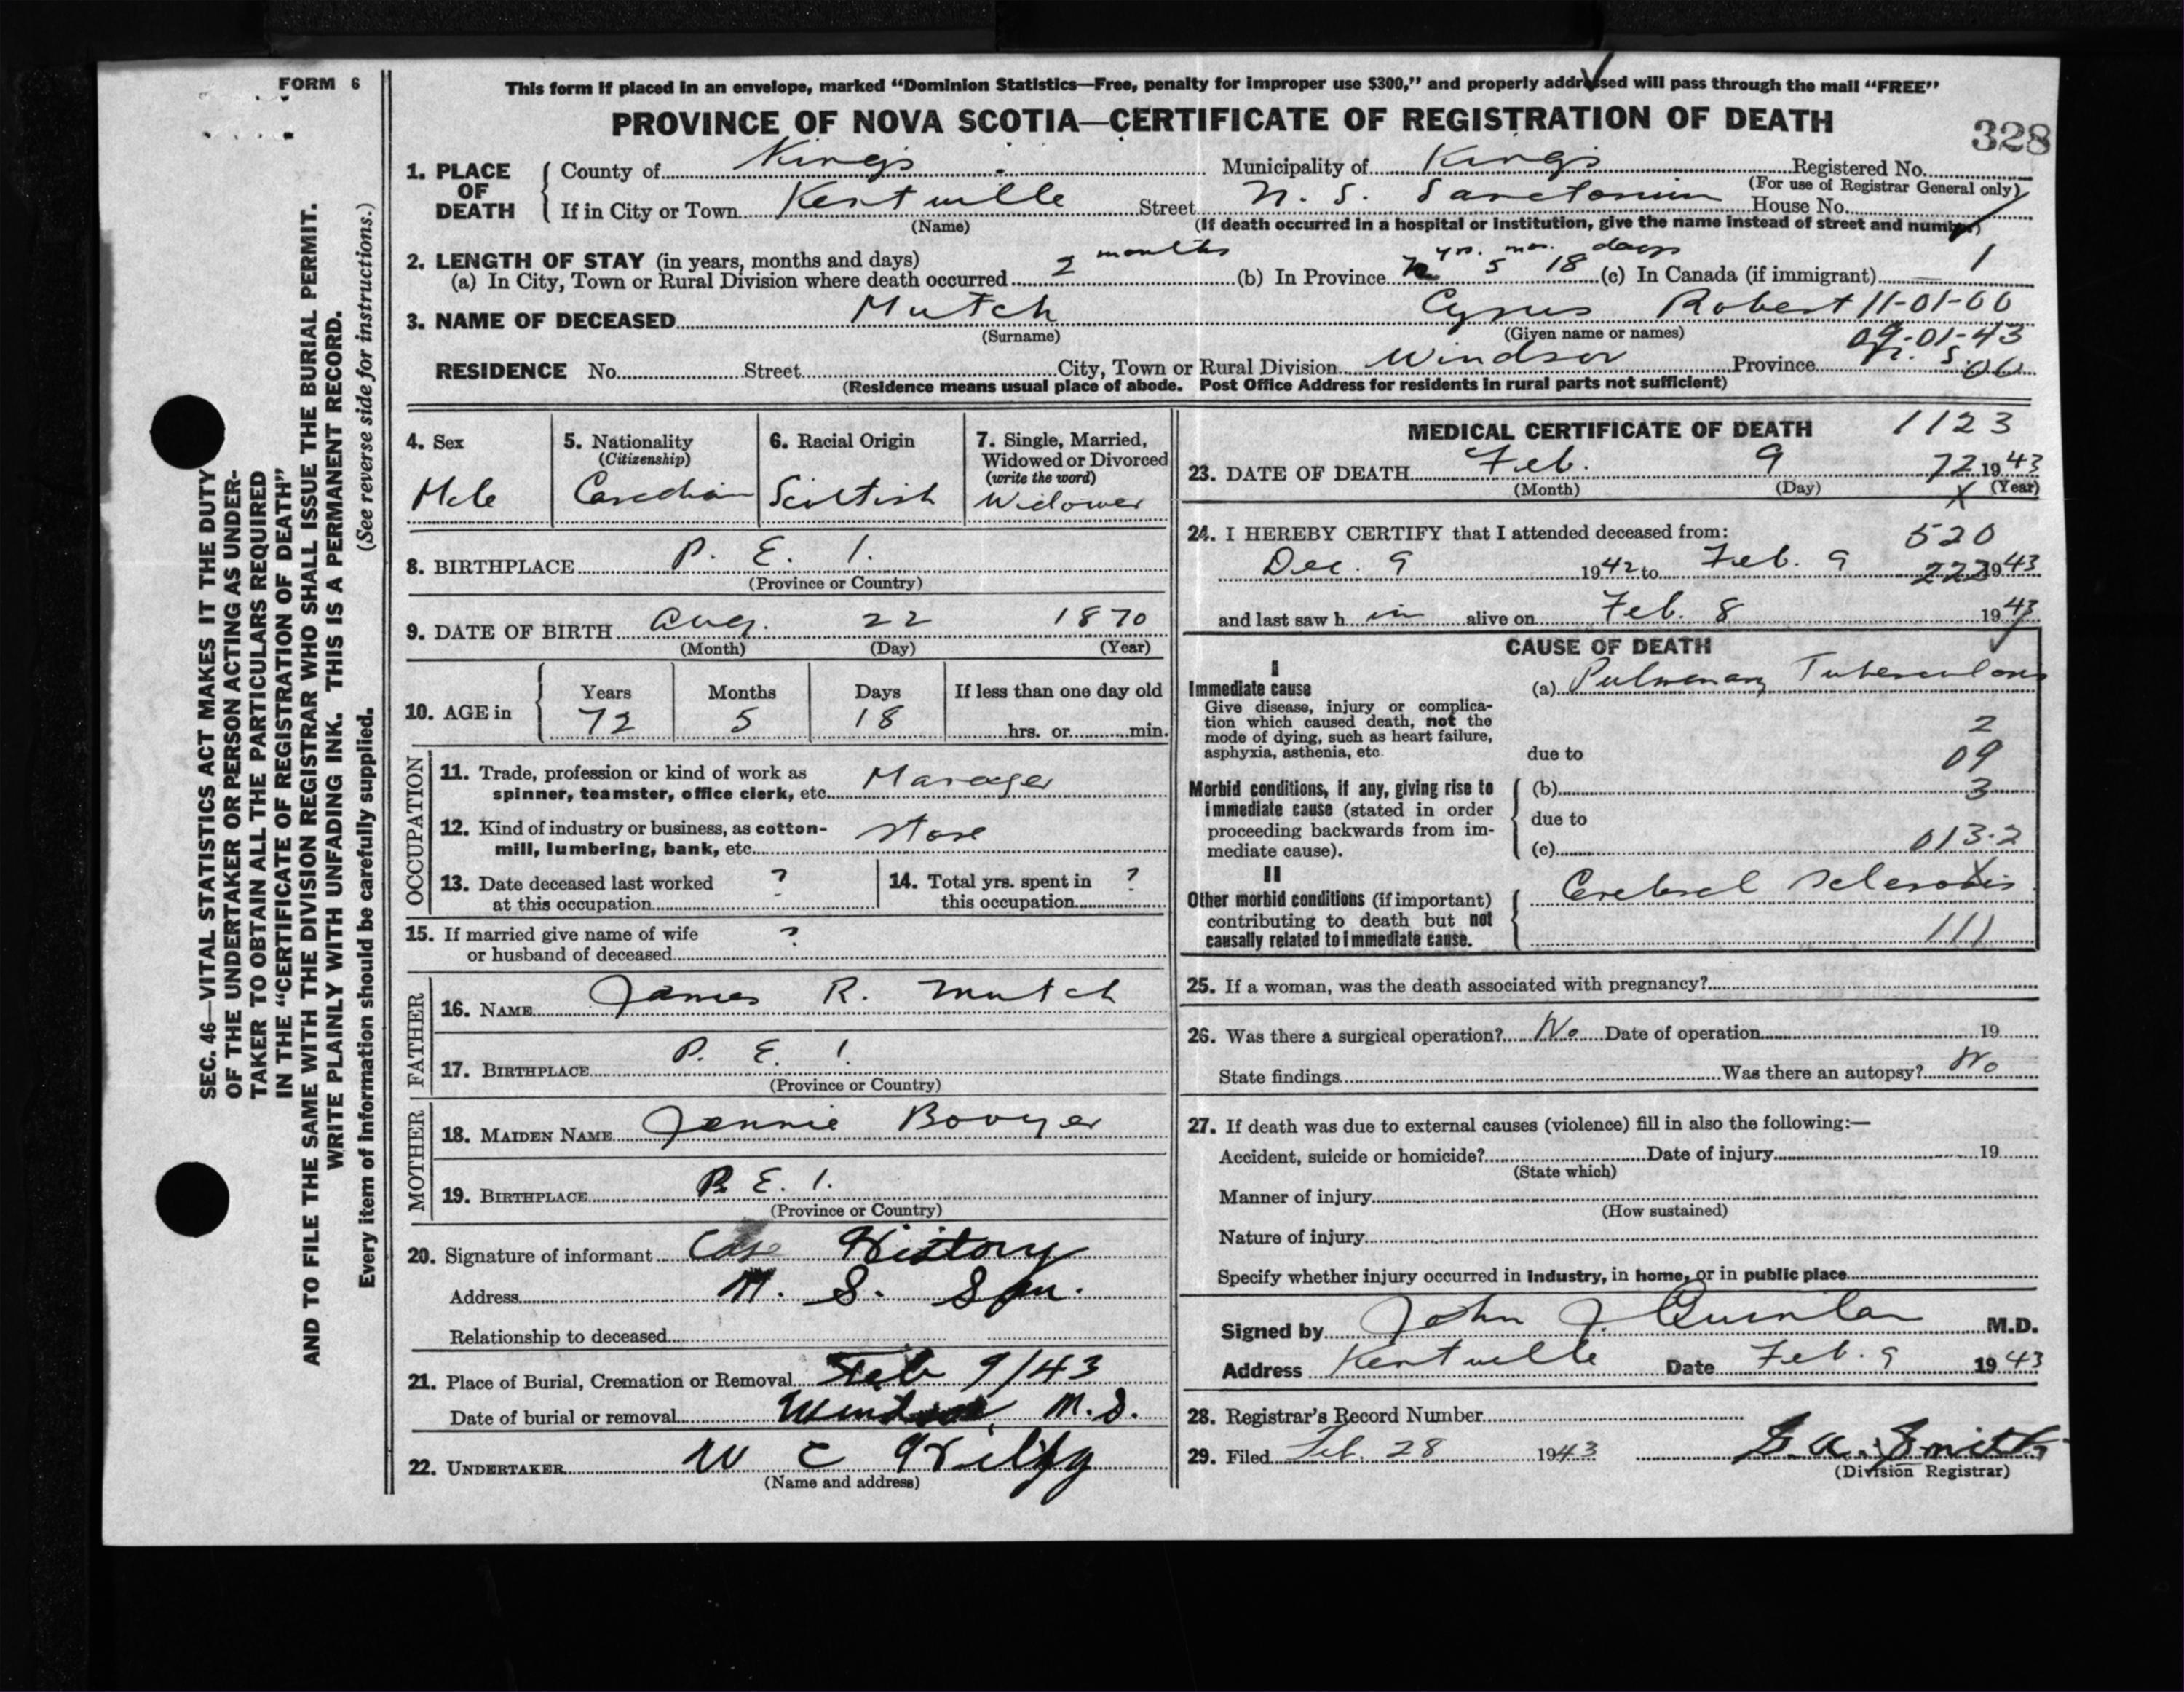 FORM 6
This form if placed in an envelope, marked “Dominion Statistics—Free, penalty for improper use $300,” and properly addressed will pass through the mail “FREE”
PROVINCE OF NOVA SCOTIA—CERTIFICATE OF REGISTRATION OF DEATH
328
1. PLACE OF DEATH
County of Kings Municipality of Kings Registered No.
(For use of Registrar General only)
If in City or Town Kentville Street N. S. Sanctorium House No.
(Name) (If death occurred in a hospital or institution, give the name instead of street and number)
2. LENGTH OF STAY (in years, months and days)
(a) In City, Town or Rural Division where death occurred 2 months (b) In Province yrs. 5 mos. 18 days (c) In Canada (if immigrant) 1
3. NAME OF DECEASED Mutch Cyrus Robert 11-01-00
(Surname) (Given name or names)
09-01-43
RESIDENCE No. Street City, Town or Rural Division Windsor Province N. S. 00
(Residence means usual place of abode. Post Office Address for residents in rural parts not sufficient)
4. Sex
Male
5. Nationality
(Citizenship)
Canadian
6. Racial Origin
Scottish
7. Single, Married,
Widowed or Divorced
(write the word)
Widower
8. BIRTHPLACE P. E. I.
(Province or Country)
9. DATE OF BIRTH Aug. 22 1870
(Month) (Day) (Year)
10. AGE in
Years Months Days If less than one day old
72 5 18 hrs. or min.
OCCUPATION
11. Trade, profession or kind of work as
spinner, teamster, office clerk, etc. Manager
12. Kind of industry or business, as cotton-
mill, lumbering, bank, etc. Store
13. Date deceased last worked
at this occupation ?
14. Total yrs. spent in
this occupation ?
15. If married give name of wife
or husband of deceased ?
FATHER
16. NAME James R. Mutch
17. BIRTHPLACE P. E. I.
(Province or Country)
MOTHER
18. MAIDEN NAME Jennie Bovyer
19. BIRTHPLACE P. E. I.
(Province or Country)
20. Signature of informant Case History
Address N. S. San.
Relationship to deceased
21. Place of Burial, Cremation or Removal Feb 9/43
Date of burial or removal Windsor N. S.
22. UNDERTAKER W C
(Name and address)
MEDICAL CERTIFICATE OF DEATH
1123
23. DATE OF DEATH Feb. 9 72 1943
(Month) (Day) (Year)
X
24. I HEREBY CERTIFY that I attended deceased from:
520
Dec. 9 1942 to Feb. 9 1943
222
and last saw h im alive on Feb. 8 1943
CAUSE OF DEATH
I
Immediate cause
Give disease, injury or complica-
tion which caused death, not the
mode of dying, such as heart failure,
asphyxia, asthenia, etc.
(a) Pulmonary Tuberculosis
2
due to
09
Morbid conditions, if any, giving rise to
immediate cause (stated in order
proceeding backwards from im-
mediate cause).
(b)
3
due to
(c) 013.2
II
X
Other morbid conditions (if important)
contributing to death but not
causally related to immediate cause.
Cerebral Sclerosis
111
25. If a woman, was the death associated with pregnancy?
26. Was there a surgical operation? No Date of operation 19
State findings Was there an autopsy? No
27. If death was due to external causes (violence) fill in also the following:—
Accident, suicide or homicide? Date of injury 19
(State which)
Manner of injury
(How sustained)
Nature of injury
Specify whether injury occurred in industry, in home, or in public place
Signed by John J. Quinlan M.D.
Address Kentville Date Feb. 9 1943
28. Registrar's Record Number
29. Filed Feb. 28 1943 Smith
(Division Registrar)
SEC. 46—VITAL STATISTICS ACT MAKES IT THE DUTY
OF THE UNDERTAKER OR PERSON ACTING AS UNDER-
TAKER TO OBTAIN ALL THE PARTICULARS REQUIRED
IN THE “CERTIFICATE OF REGISTRATION OF DEATH”
AND TO FILE THE SAME WITH THE DIVISION REGISTRAR WHO SHALL ISSUE THE BURIAL PERMIT.
WRITE PLAINLY WITH UNFADING INK. THIS IS A PERMANENT RECORD.
Every item of information should be carefully supplied. (See reverse side for instructions.)